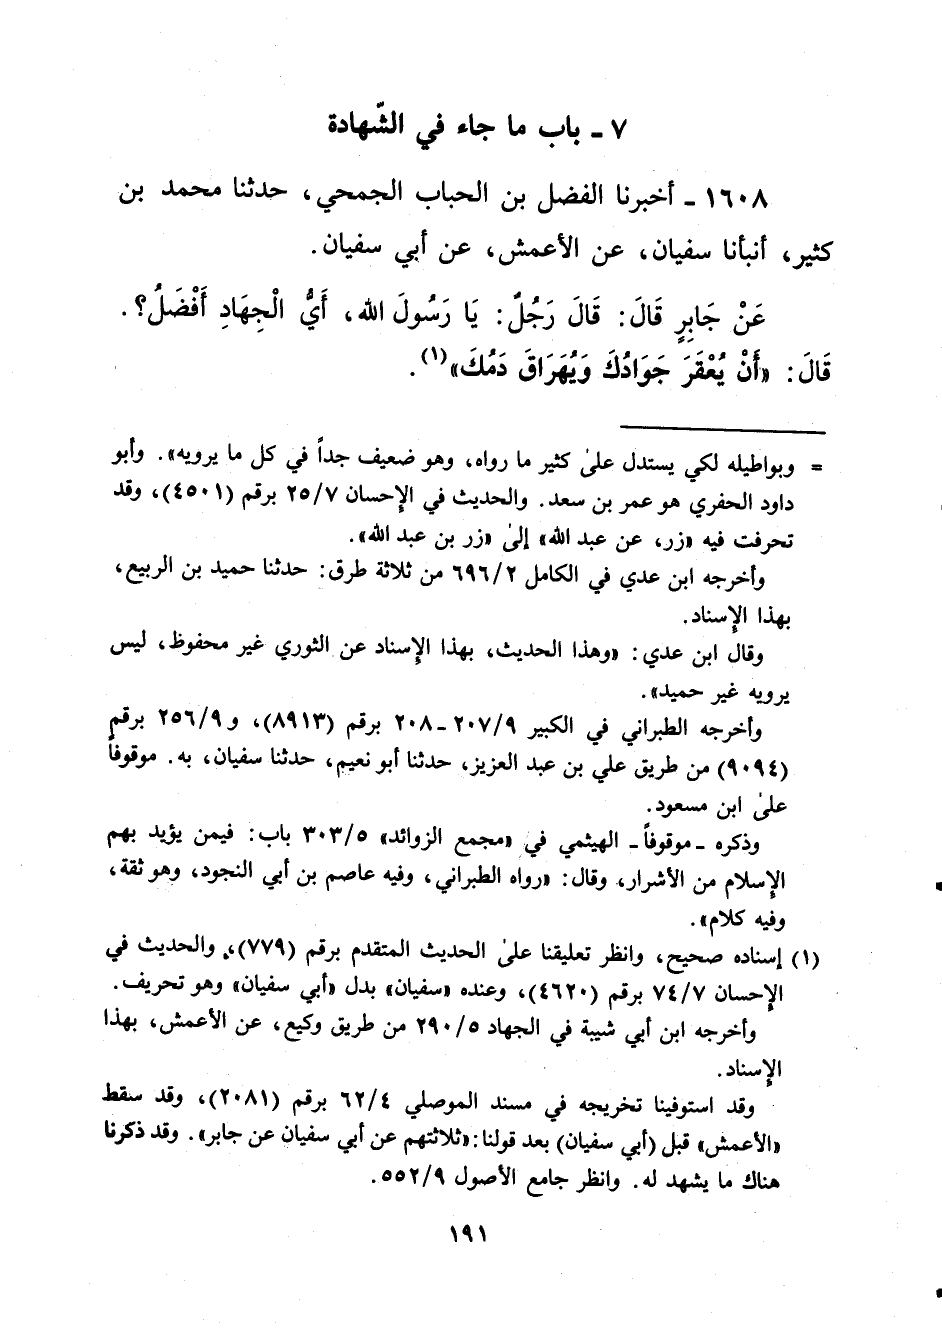 ٧ ـ باب ما جاء في الشّهادة
١٦٠٨ ـ أخبرنا الفضل بن الحباب الجمحي، حدثنا محمد بن
كثير، أنبأنا سفيان، عن الأعمش، عن أبي سفيان.
عَنْ جَابِرٍ قَالَ: قَالَ رَجُلٌ: يَا رَسُولَ الله، أَيُّ الْجِهَادِ أَفْضَلُ؟.
قَالَ: «أَنْ يُعْقَرَ جَوَادُكَ وَيُهَرَاقَ دَمُكَ»(١).
= وبواطيله لكي يستدل علىٰ كثير ما رواه، وهو ضعيف جداً في كل ما يرويه». وأبو
داود الحفري هو عمر بن سعد. والحديث في الإحسان ٢٥/٧ برقم (٤٥٠١)، وقد
تحرفت فيه «زر، عن عبد الله» إلىٰ «زر بن عبد الله».
وأخرجه ابن عدي في الكامل ٦٩٦/٢ من ثلاثة طرق: حدثنا حميد بن الربيع،
بهذا الإسناد.
وقال ابن عدي: «وهذا الحديث، بهذا الإسناد عن الثوري غير محفوظ، ليس
يرويه غير حميد».
وأخرجه الطبراني في الكبير ٢٠٧/٩ ـ ٢٠٨ برقم (٨٩١٣)، و٢٥٦/٩ برقم
(٩٠٩٤) من طريق علي بن عبد العزيز، حدثنا أبو نعيم، حدثنا سفيان، به. موقوفاً
علىٰ ابن مسعود.
وذكره ـ موقوفاً ـ الهيثمي في «مجمع الزوائد» ٣٠٣/٥ باب: فيمن يؤيد بهم
الإسلام من الأشرار، وقال: «رواه الطبراني، وفيه عاصم بن أبي النجود، وهو ثقة،
وفيه كلام».
(١) إسناده صحيح، وانظر تعليقنا علىٰ الحديث المتقدم برقم (٧٧٩)، والحديث في
الإحسان ٧٤/٧ برقم (٤٦٢٠)، وعنده «سفيان» بدل «أبي سفيان» وهو تحريف.
وأخرجه ابن أبي شيبة في الجهاد ٢٩٠/٥ من طريق وكيع، عن الأعمش، بهذا
الإسناد.
وقد استوفينا تخريجه في مسند الموصلي ٦٢/٤ برقم (٢٠٨١)، وقد سقط
«الأعمش» قبل (أبي سفيان) بعد قولنا: «ثلاثتهم عن أبي سفيان عن جابر». وقد ذكرنا
هناك ما يشهد له. وانظر جامع الأصول ٥٥٢/٩.
١٩١